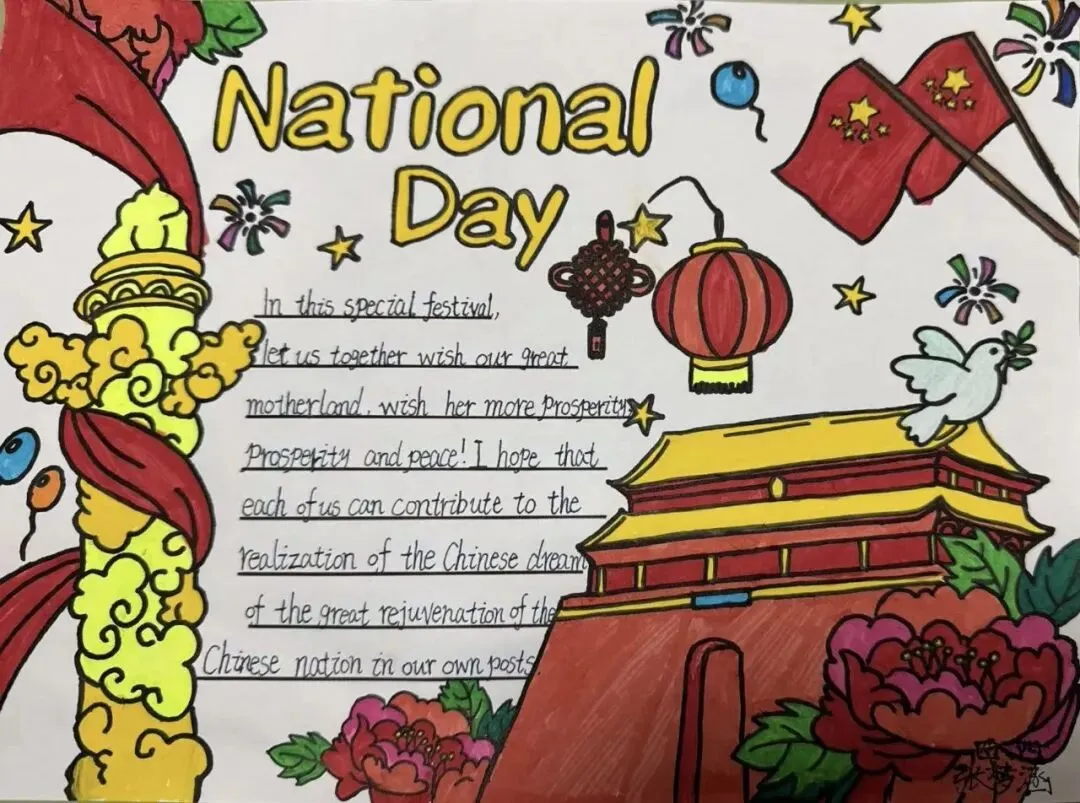 National
Day
In this special festival,
let us together wish our great
motherland, wish her more prosperity
Prosperity and peace! I hope that
each of us can contribute to the
realization of the Chinese dream
of the great rejuvenation of the
Chinese nation in our own posts
张梦涵